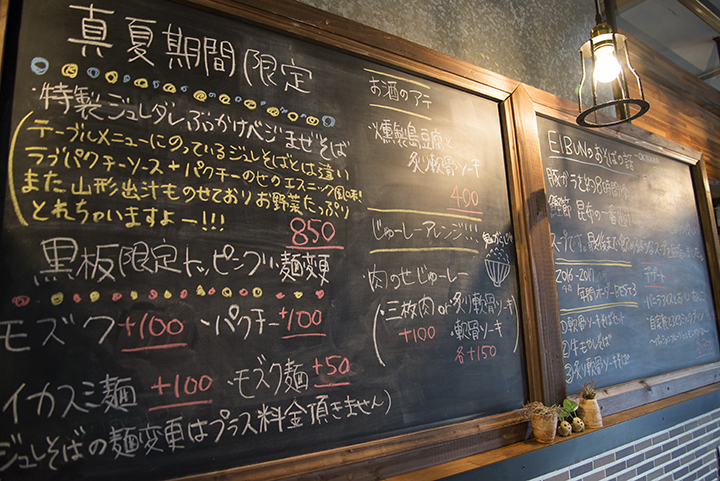 真夏期間限定
・特製ジュレダレぶっかけベジまぜそば
(テーブルメニューにのっているジュレそばとは違い
ラブパクチーソース+パクチーのせのエスニック風味!
また山形出汁ものせておりお野菜たっぷり
とれちゃいますよー!!!)
850
黒板限定トッピング・麺変更
モズク+100 ・パクチー+100
イカスミ麺 +100 ・モズク麺 +50
ジュレそばの麺変更はプラス料金頂きません)
お酒のアテ
・燻製島豆腐と
炙り軟骨ソーキ
400
じゅーしーアレンジ!!!
・肉のせじゅーしー
(・三枚肉 or 炙り軟骨ソーキ)
+100 ・軟骨ソーキ
各+150
EIBUNのおそばの話
2016-2017
①軟骨ソーキそばセット
②牛もやしそば
③炙り軟骨ソーキそば
デザート